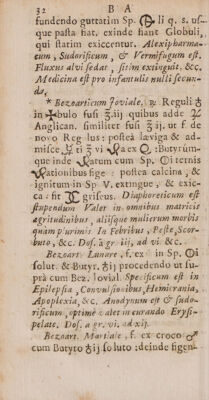 32 B A
fundendo guttatim Sp. li q. s. us-
que pasta fiat, exinde fiant Globuli,
qui statim exiccentur. Alexipharma-
cum, Sudorificum, & Vermifugum est.
Fluxus alvi sedat, sitim extinguit, &c.
Medicina est pro infantulis nulli secun-
da.
* Bezoarticum Joviale, ♃ Reguli ♁
in bulo fusi ℥.iij quibus adde ♃
Anglican. similiter fusi ℥ ij. ut f de
novo Reg lus: postea lævigа & ad-
misce ℥ vi ex :Butyrúm-
que inde atum cum Sp. ternis
ationibus fige: postea calcina, &
ignitum in Sp V. extingue, & exic-
ca: fit griseus. Diaphoreticum est
stupendum Valet in omnibus matricis
agritudinibus, aliisque mulierum morbis
quam plurimis In Febribus, Peste, Scor-
buto, &c. Dos. à gr. iij, ad vi. &c.
Bezoart. Lunare, f. ex in Sp.
solut. & Butyr. ♁ij procedendo ut su-
prà cum Bez. Jovial. Specificum est in
Epilepsia, Convulsionibus, Hemicrania,
Apoplexia, &c. Anodynum est & sudo-
rificum, optimè valet in curando Erysi-
pelate. Dos. a gr. vi. ad xij.
Bezoart. Martiale, f. ex croco ♂
cum Butyro ♁ij soluto :deinde figen-